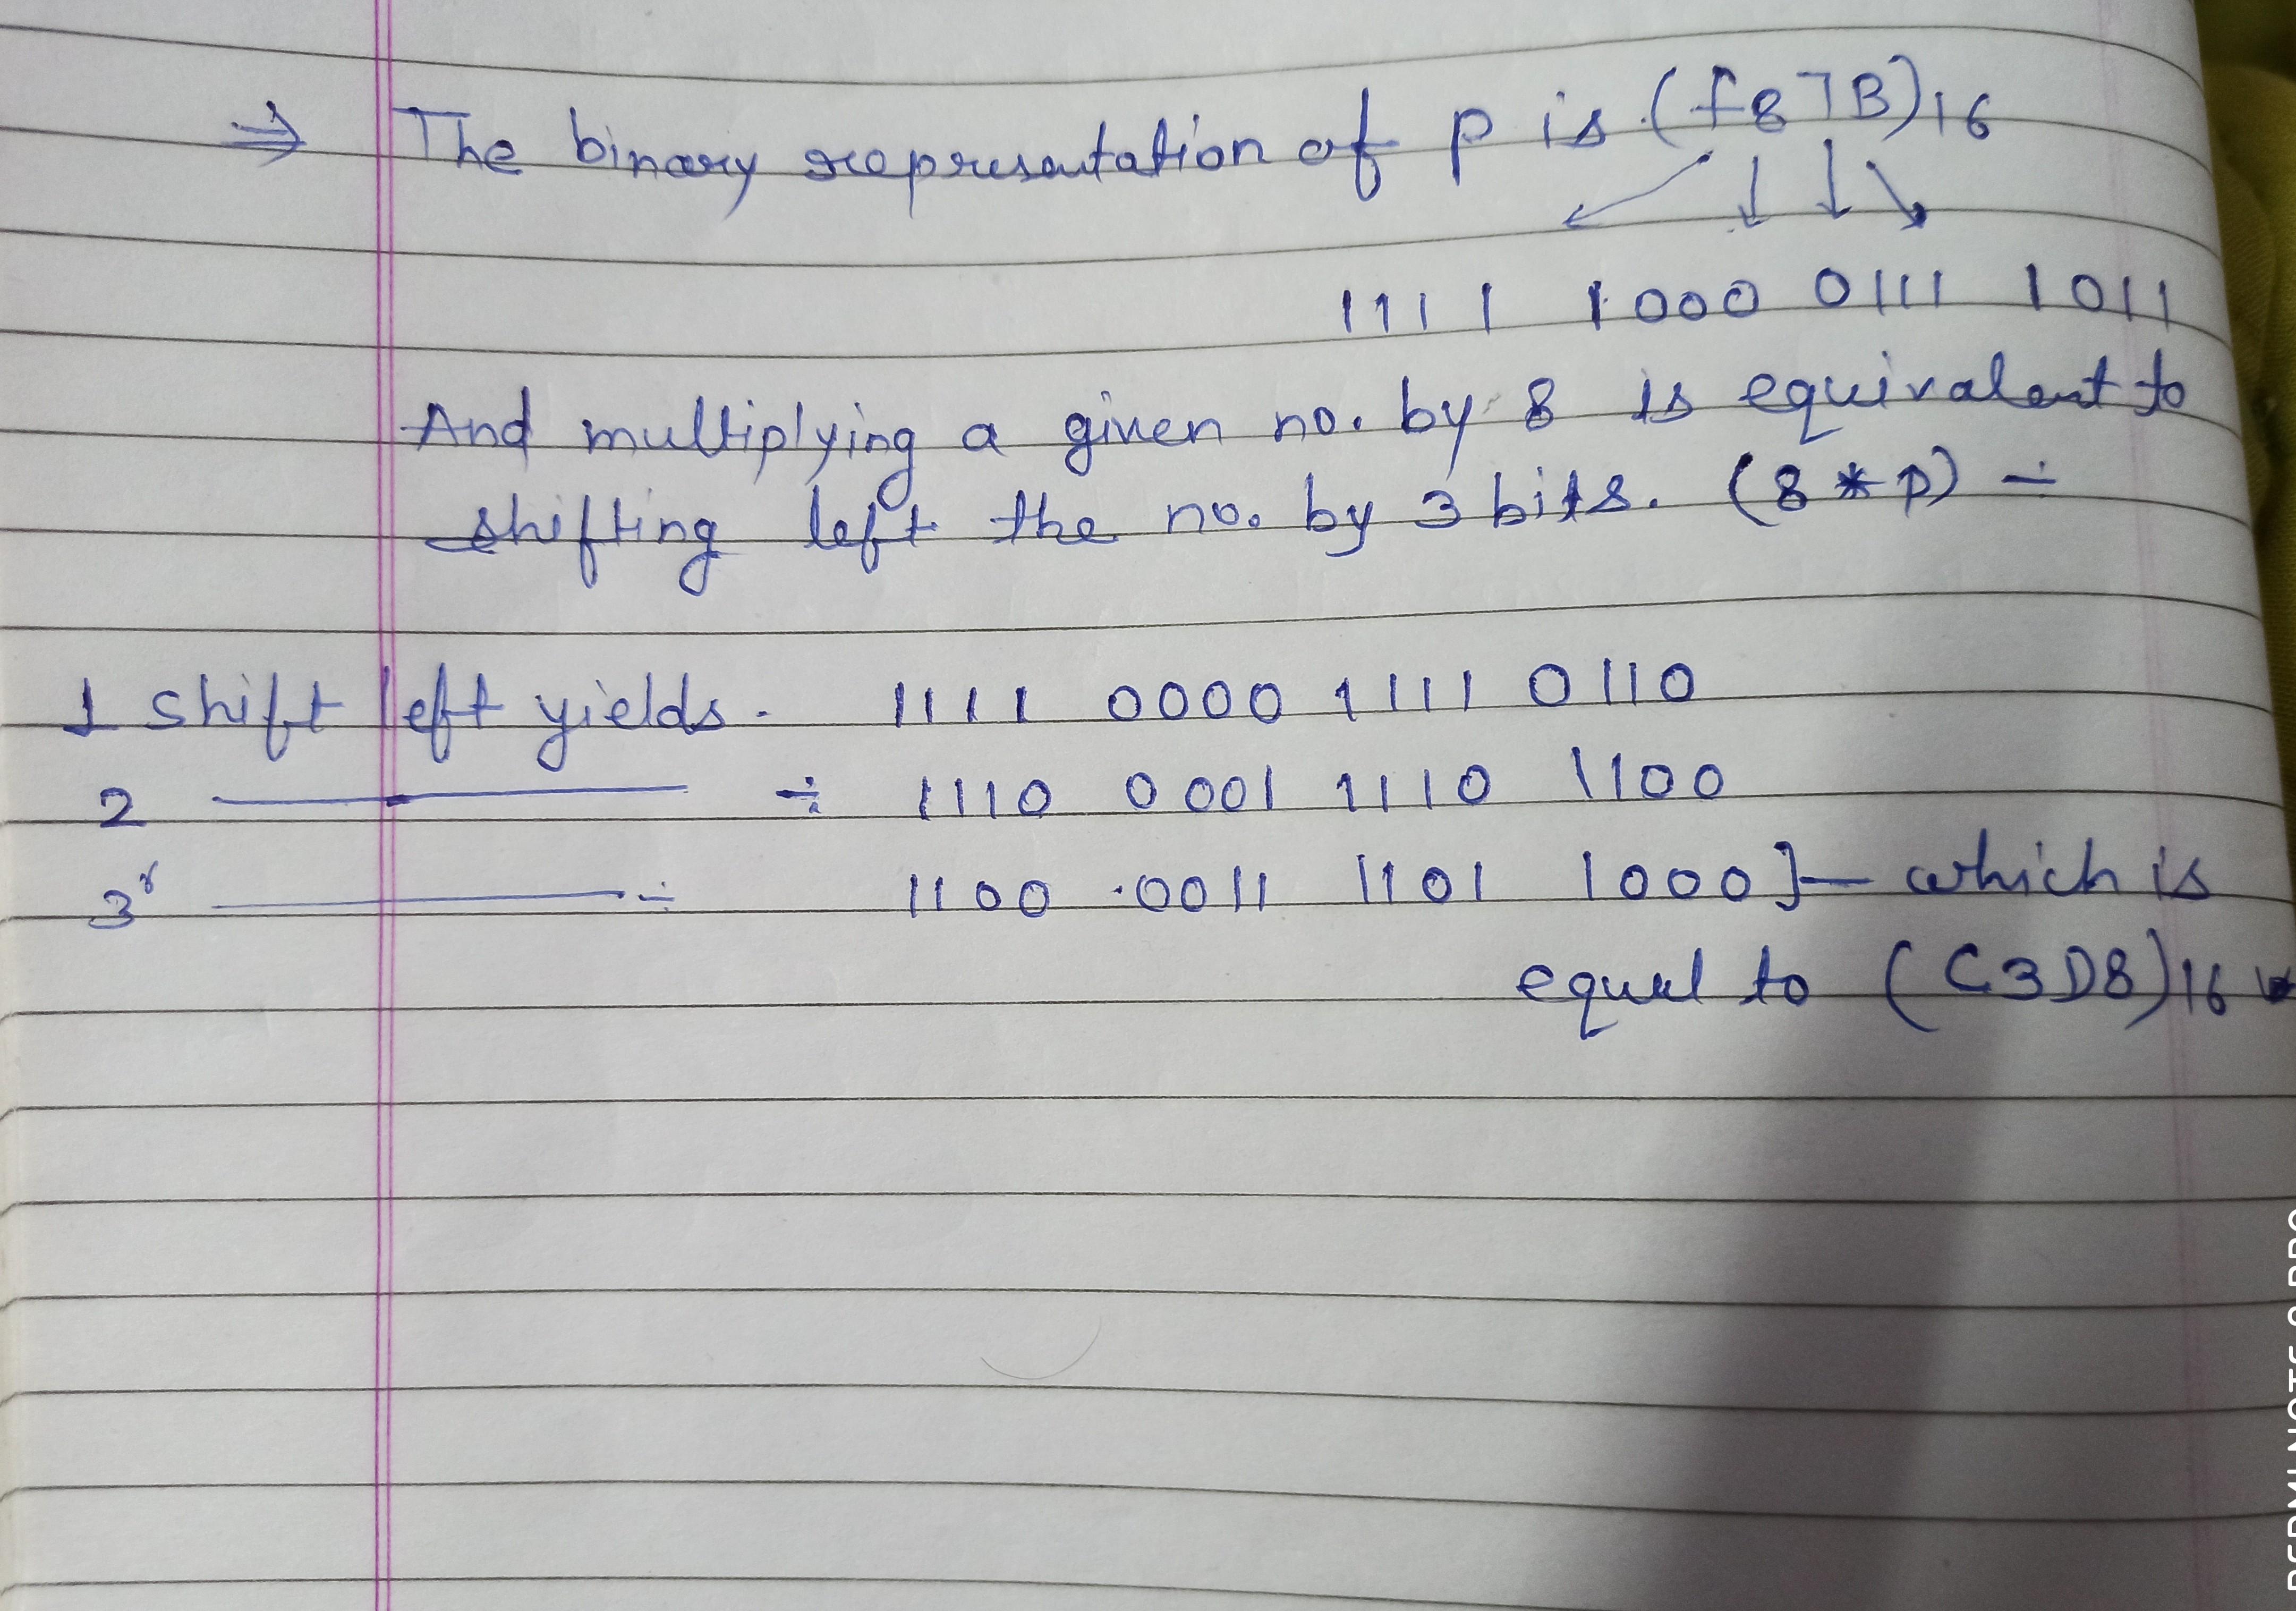 ⇒ The binary representation of P is (F87B)16
1111 1000 0111 1011
And multiplying a given no. by 8 is equivalent to
shifting left the no. by 3 bits. (8 * P) ÷
1 shift left yields. 1111 0000 1111 0110
2 ——— ÷ 1110 0001 1110 1100
3 ——— ÷ 1100 0011 1101 1000 }— which is
equal to (C3D8)16
REDMI NOTE 8 PRO